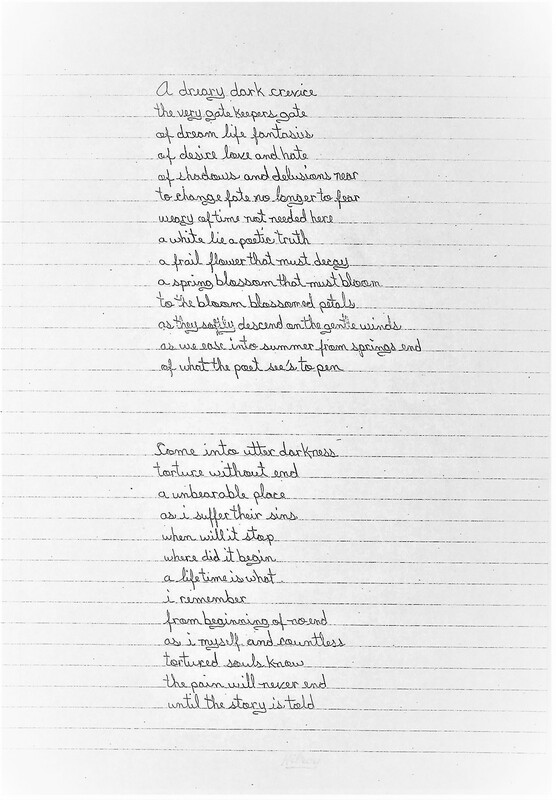 A dreary dark crevice
the very gate keepers gate
of dream life fantasies
of desire love and hate
of shadows and delusions near
to change fate no longer to fear
weary of time not needed here
a white lie a poetic truth
a frail flower that must decay
a spring blossom that must bloom
to the bloom blossomed petals
as they softly descend on the gentle winds
as we ease into summer from springs end
of what the poet see's to pen
Come into utter darkness
torture without end
a unbearable place
as i suffer their sins
when will it stop
where did it begin
a lifetime is what
i remember
from beginning of no end
as i myself and countless
tortured souls know
the pain will never end
until the story is told